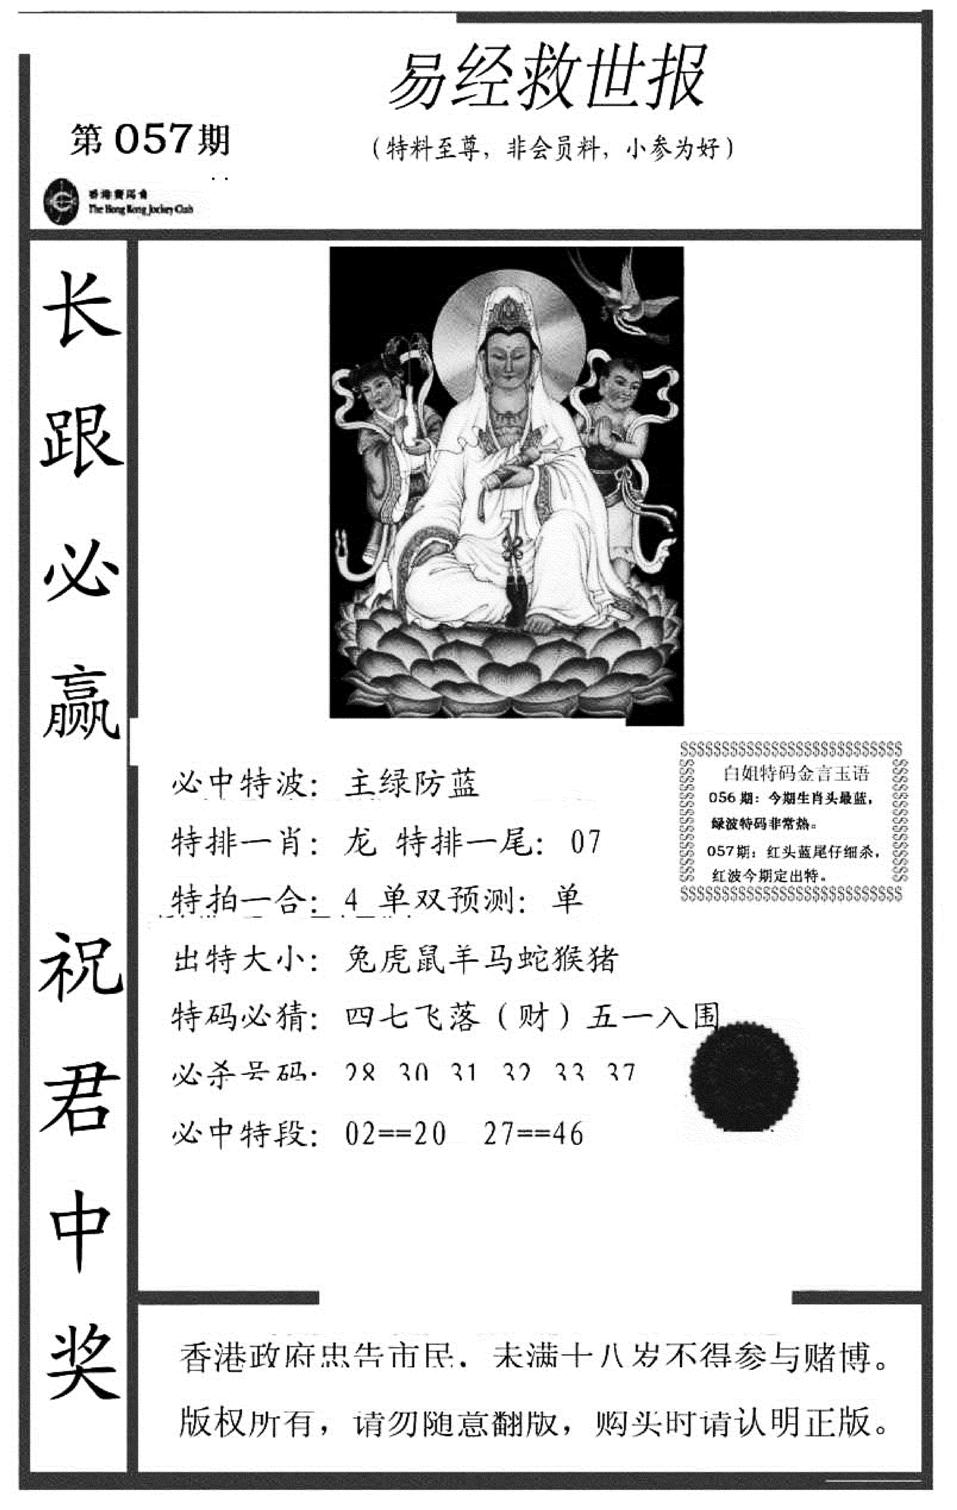 易经救世报
第057期
(特料至尊，非会员料，小参为好)
香港赛马会
The Hong Kong Jockey Club
长跟必赢 祝君中奖
必中特波：主绿防蓝
特排一肖：龙 特排一尾：07
特拍一合：4 单双预测：单
出特大小：兔虎鼠羊马蛇猴猪
特码必猜：四七飞落（财）五一入围
必杀号码：28 30 31 32 33 37
必中特段：02==20 27==46
$$$$$$$$$$$$$$$$$$$$$$$$$$$
白姐特码金言玉语
056期：今期生肖头最蓝，
绿波特码非常热。
057期：红头蓝尾仔细杀，
红波今期定出特。
$$$$$$$$$$$$$$$$$$$$$$$$$$$
香港政府忠告市民，未满十八岁不得参与赌博。
版权所有，请勿随意翻版，购买时请认明正版。